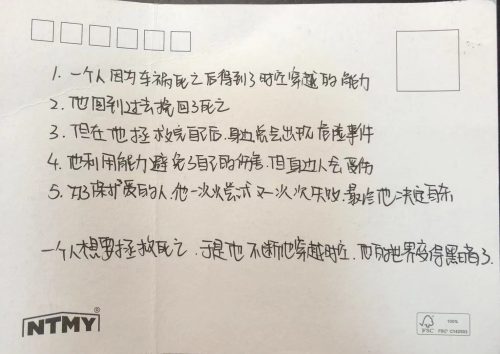 1. 一个人因为车祸死亡后得到了时空穿越的能力
2. 他回到过去挽回了死亡
3. 但在他拯救完自己后，身边总会出现危险事件
4. 他利用能力避免了自己的伤害，但身边人会受伤
5. 为了保护爱的人，他一次次尝试又一次次失败，最终他决定自杀
一个人想要拯救死亡，于是他不断地穿越时空，他的世界变得黑暗了.
NTMY®
FSC
100%
FSC® C142003